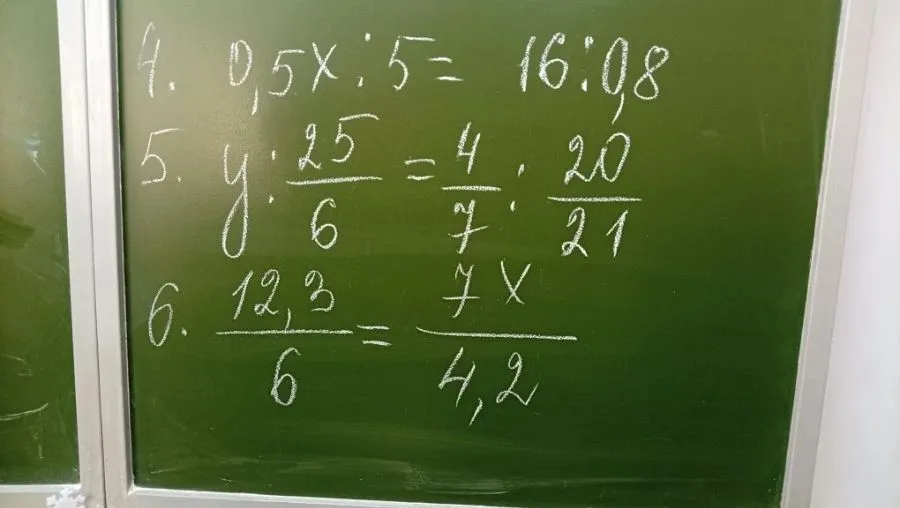 4. 0,5x : 5 = 16 : 0,8
5. y : 25/6 = 4/7 : 20/21
6. 12,3/6 = 7x/4,2